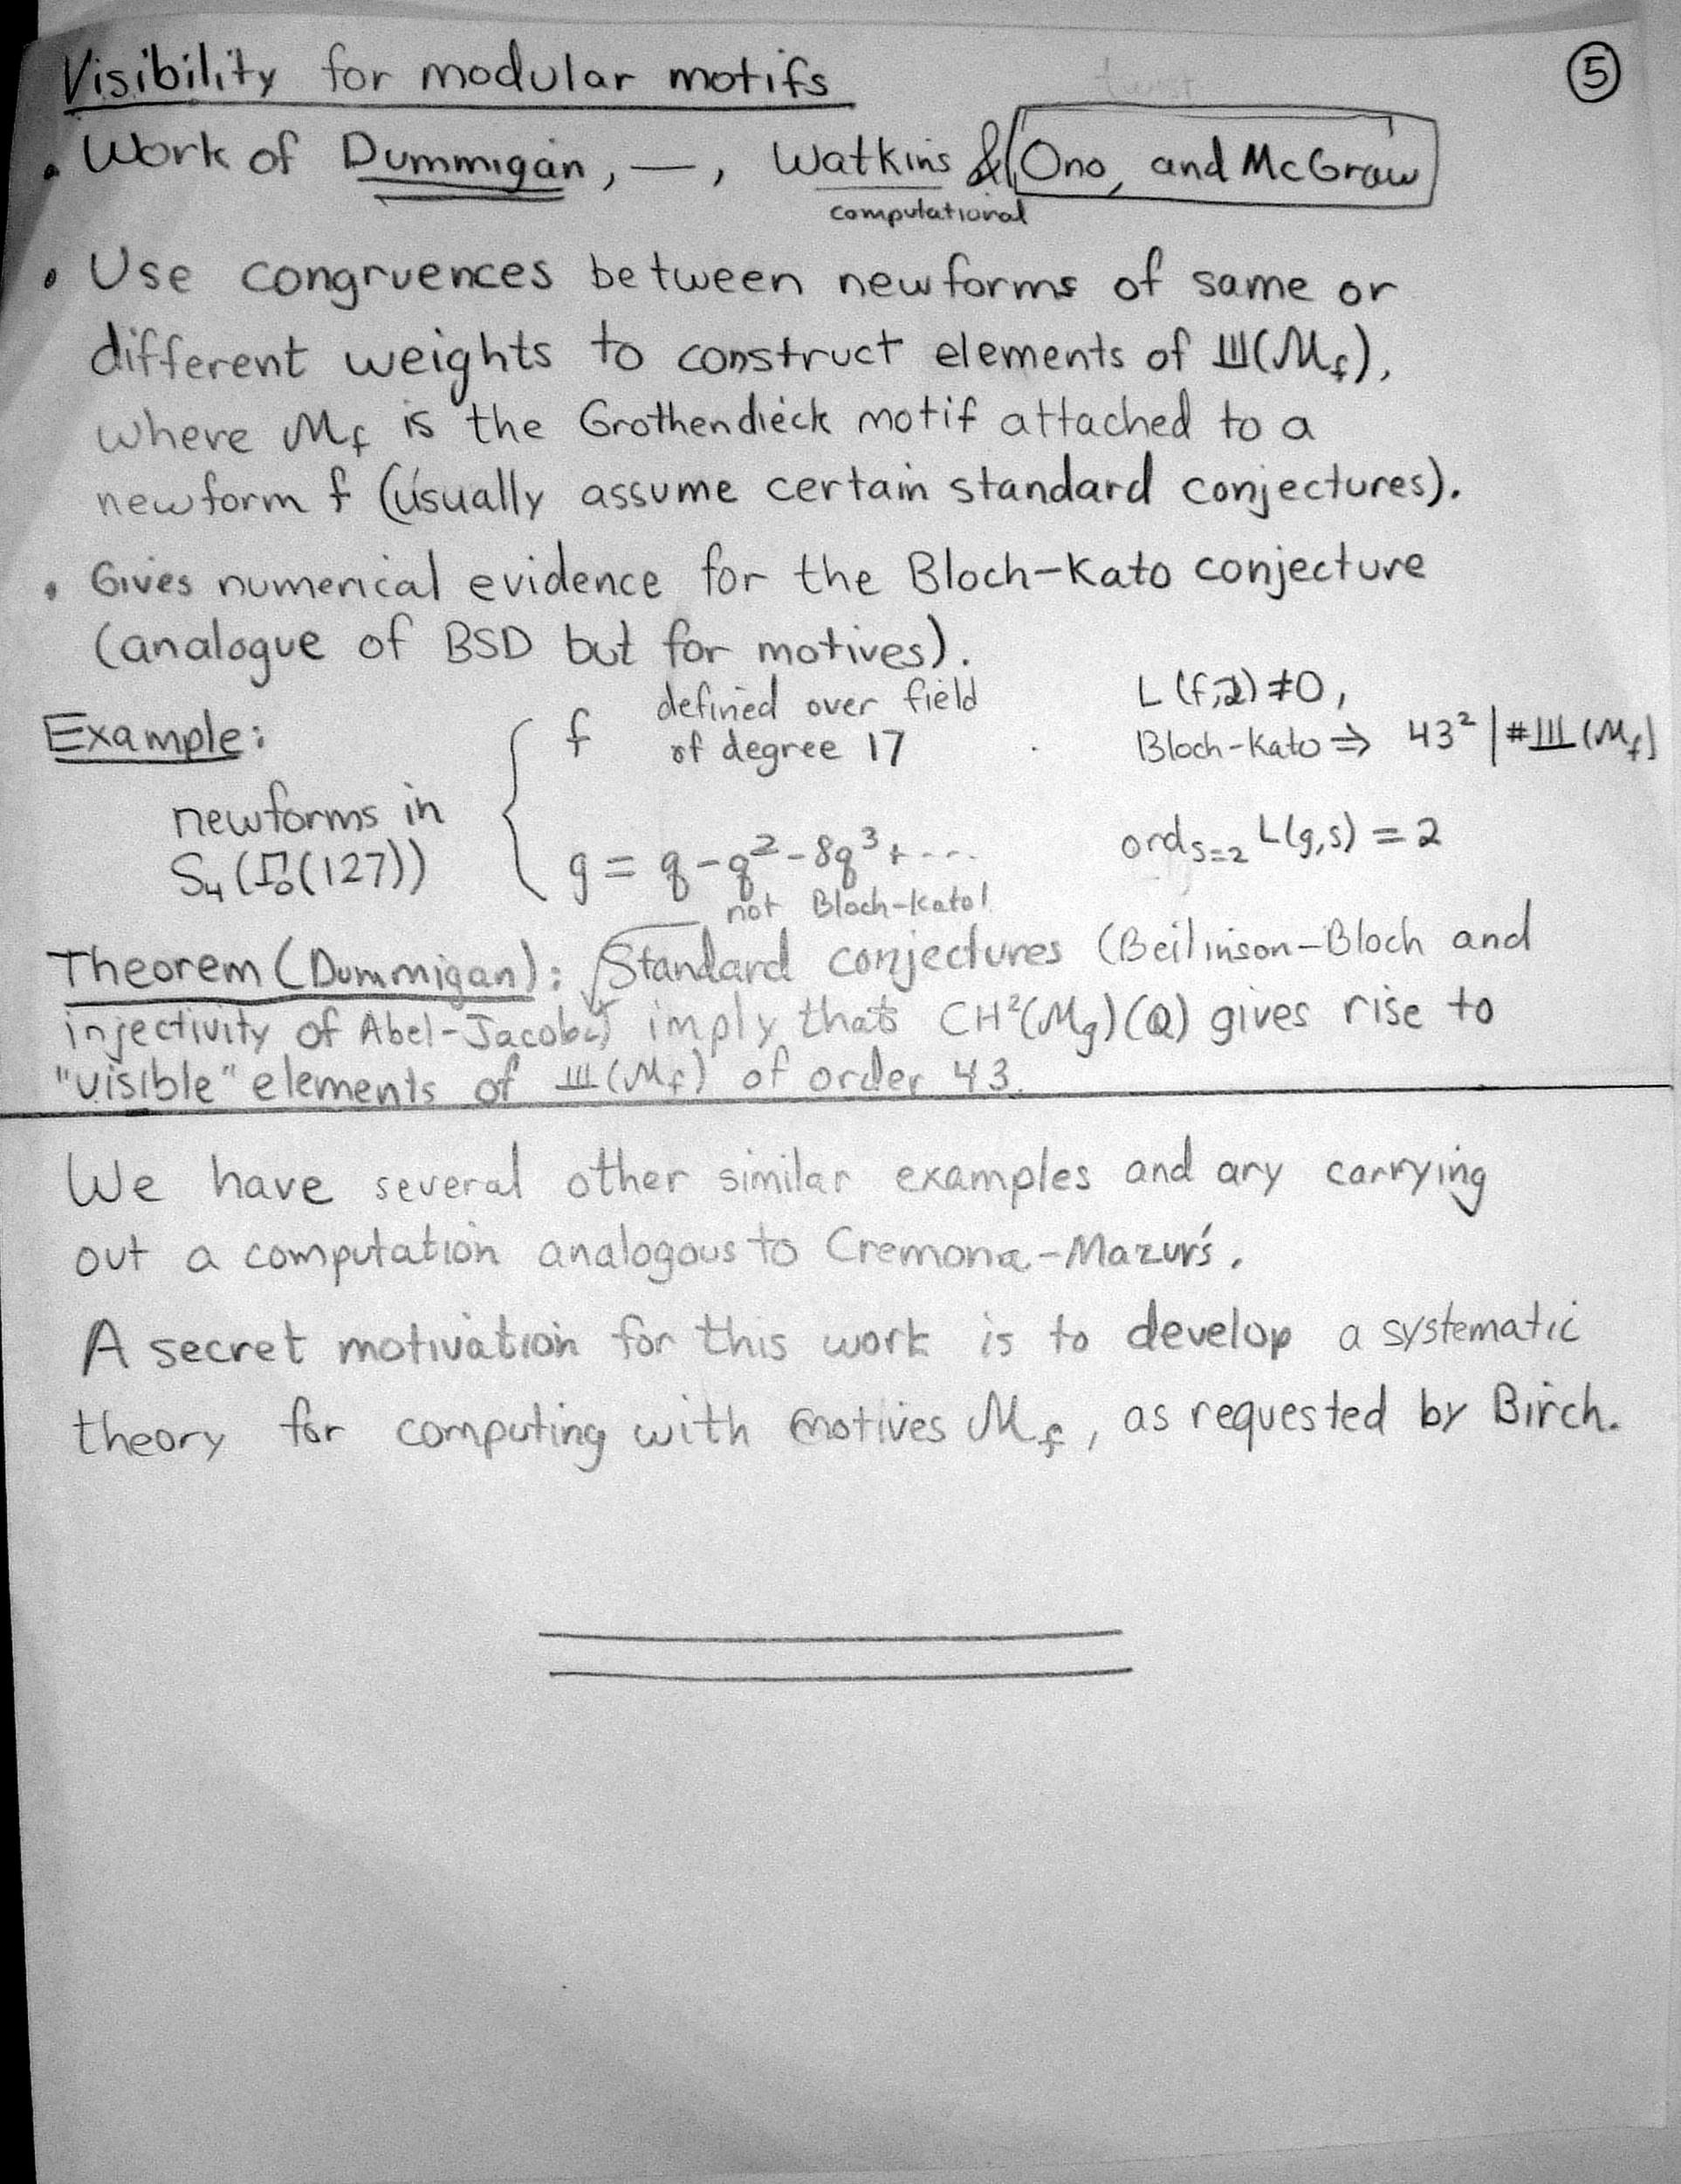 Visibility for modular motifs
⑤
twist
• Work of Dummigan, —, Watkins & Ono, and McGraw
computational
• Use congruences between newforms of same or
different weights to construct elements of Ш(M_f),
where M_f is the Grothendieck motif attached to a
newform f (usually assume certain standard conjectures).
• Gives numerical evidence for the Bloch-Kato conjecture
(analogue of BSD but for motives).
Example:
newforms in
S₄(Γ₀(127))
f defined over field
of degree 17
L(f,2)≠0,
Bloch-Kato ⇒ 43² | #Ш(M_f)
g = q - q² - 8q³ + ....
ord_{s=2} L(g,s) = 2
not Bloch-Kato!
Theorem (Dummigan): Standard conjectures (Beilinson-Bloch and
injectivity of Abel-Jacobi) imply that CH²(M_g)(Q) gives rise to
"visible" elements of Ш(M_f) of order 43.
We have several other similar examples and ary carrying
out a computation analogous to Cremona-Mazur's.
A secret motivation for this work is to develop a systematic
theory for computing with motives M_f, as requested by Birch.